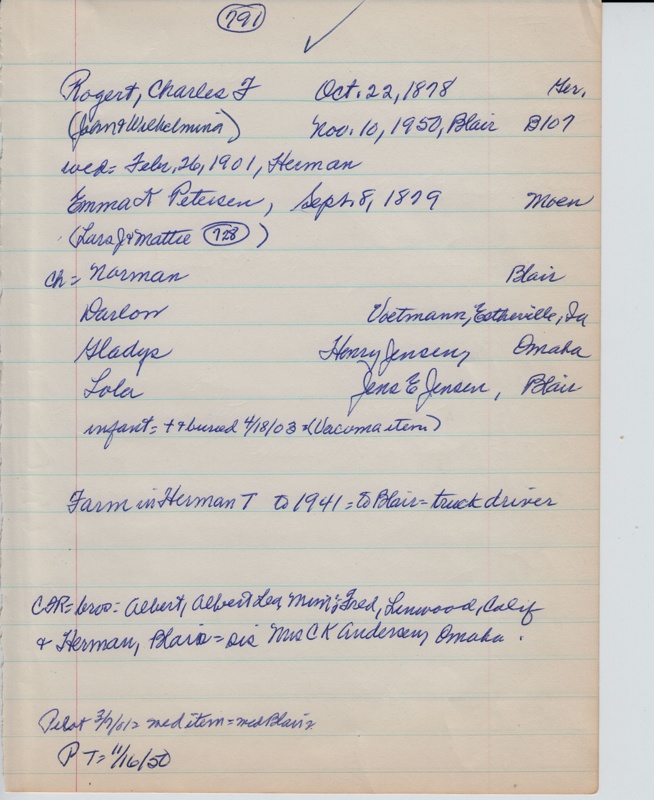 791
Rogert, Charles F Oct. 22, 1878 Ger.
(John & Wilhelmina) Nov. 10, 1950, Blair B107
wed= Febr. 26, 1901, Herman
Emma K Petersen, Sept. 8, 1879 Moen
(Lars J & Mattie 728)
ch= Norman Blair
Darlow Voetmann, Estherville, Ia
Gladys Henry Jensen, Omaha
Lola Jens E Jensen, Blair
infant= + & buried 4/18/03 = (Vacoma item)
Farm in Herman T to 1941 = to Blair = truck driver
CFR= bros= Albert, Albert Lea, Minn; Fred, Linwood, Calif
& Herman, Blair = sis Mrs CK Andersen, Omaha.
Pilot 3/7/01= wed item = wed Blair
P T= 11/16/50